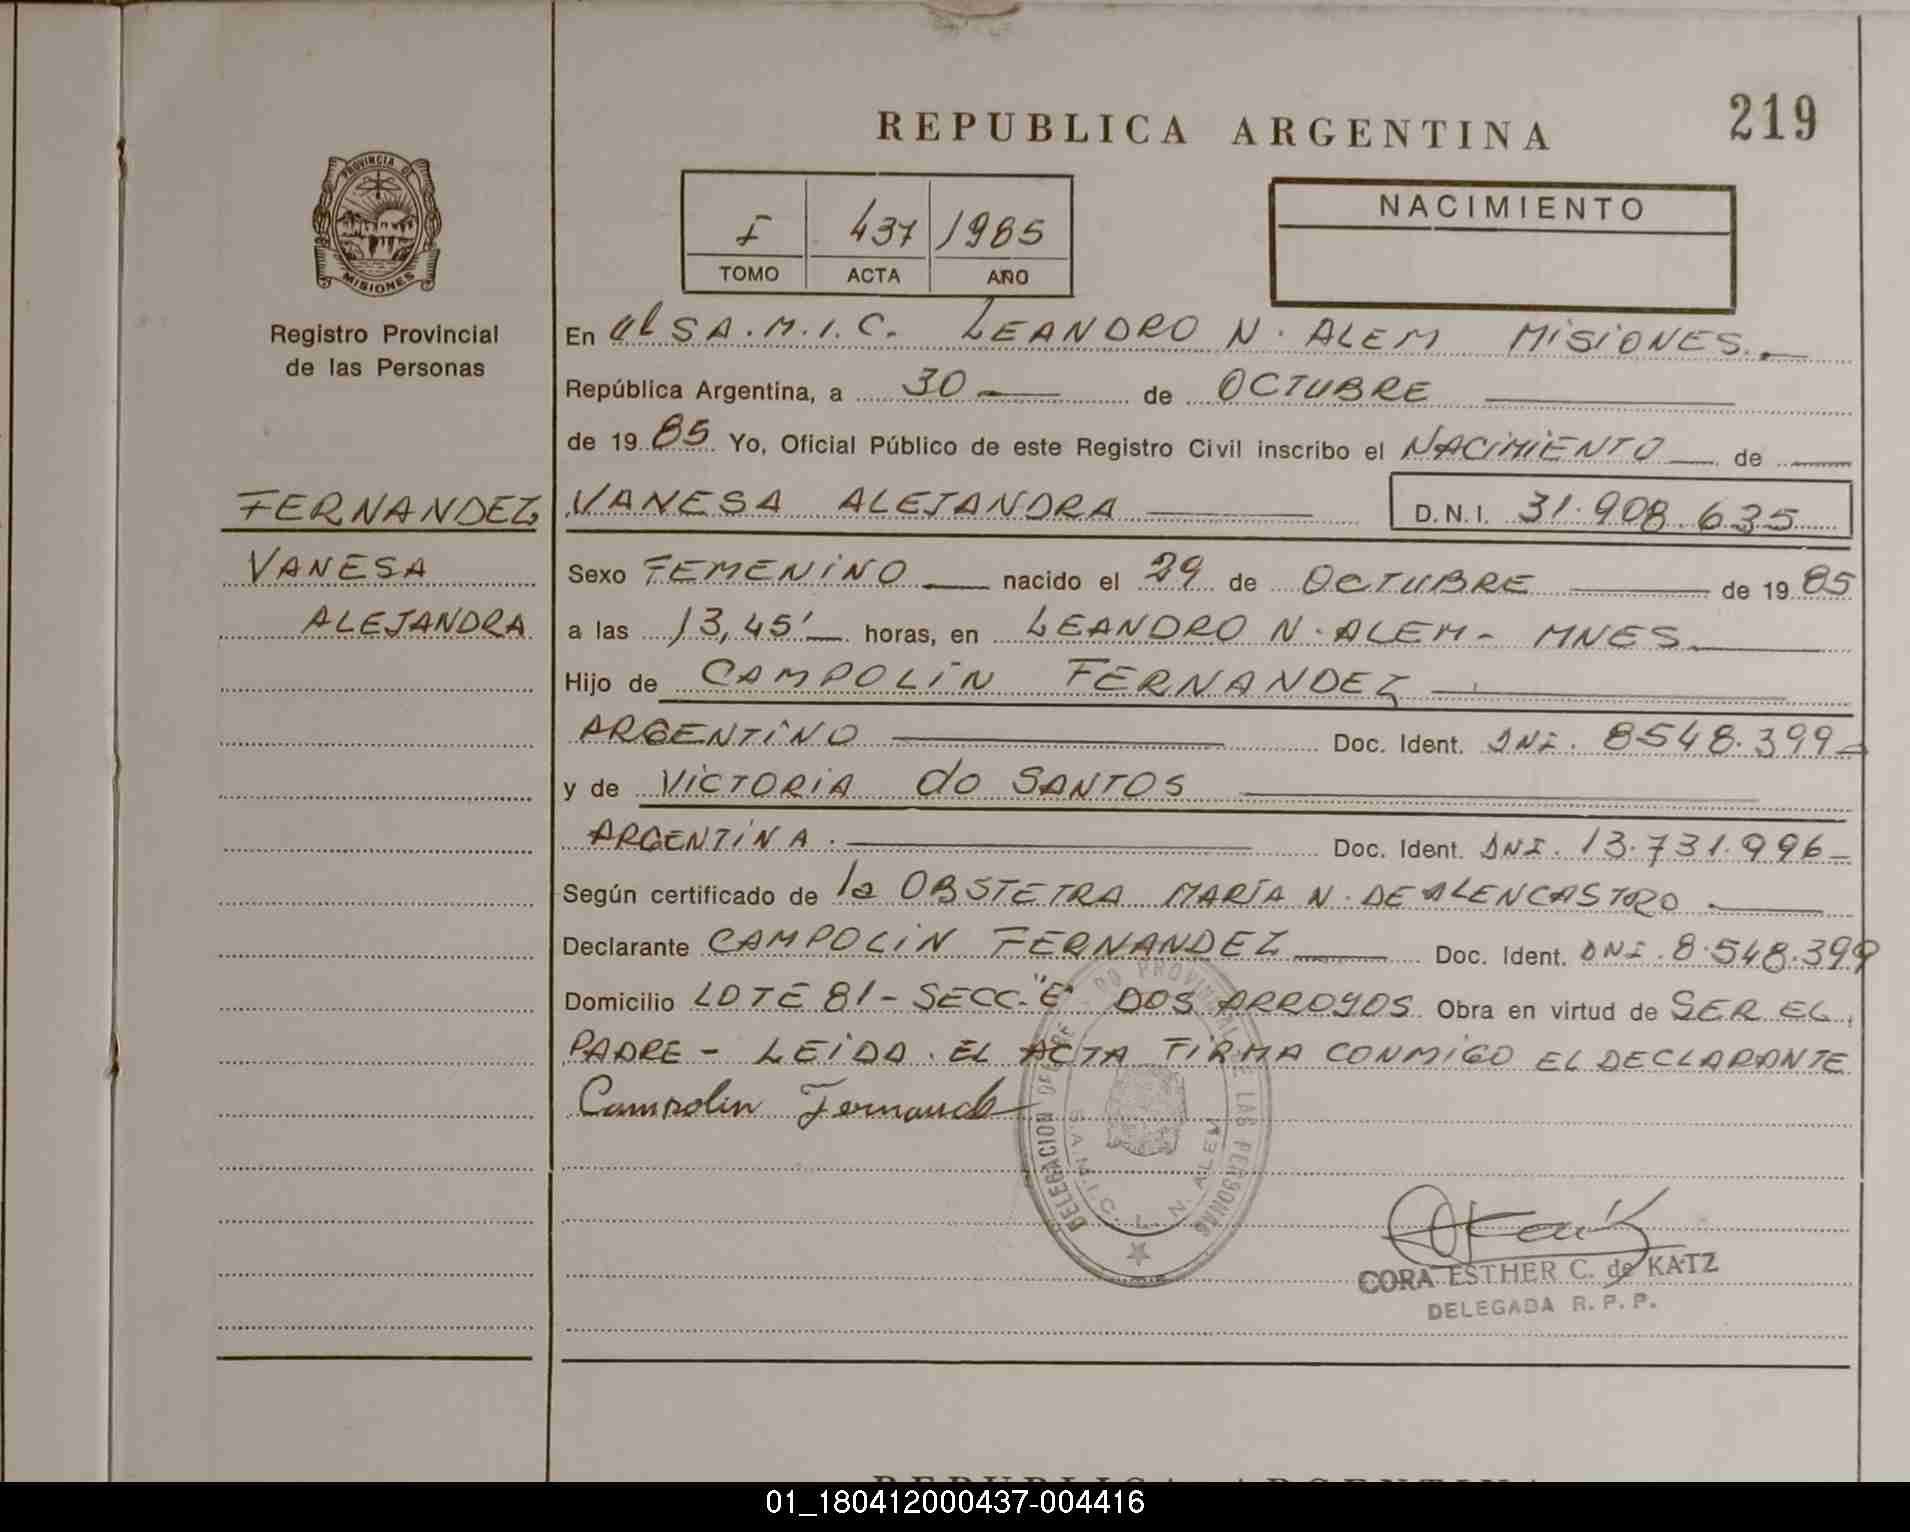 REPUBLICA ARGENTINA
219
PROVINCIA DE
MISIONES
Registro Provincial
de las Personas
I 437 1985
TOMO ACTA AÑO
NACIMIENTO
En el SA.M.I.C. LEANDRO N. ALEM MISIONES.
República Argentina, a 30 de OCTUBRE
de 19 85 Yo, Oficial Público de este Registro Civil inscribo el NACIMIENTO de
FERNANDEZ
VANESA
ALEJANDRA
VANESA ALEJANDRA D.N.I. 31.908.635
Sexo FEMENINO nacido el 29 de OCTUBRE de 19 85
a las 13,45' horas, en LEANDRO N. ALEM - MNES.
Hijo de CAMPOLIN FERNANDEZ
ARGENTINO Doc. Ident. DNI. 8548.399
y de VICTORIA do SANTOS
ARGENTINA. Doc. Ident. DNI. 13.731.996
Según certificado de la OBSTETRA MARÍA N. DE ALENCASTRO
Declarante CAMPOLIN FERNANDEZ Doc. Ident. DNI. 8.548.399
Domicilio LOTE 81 - SECC. "E" DOS ARROYOS Obra en virtud de SER EL
PADRE - LEIDA EL ACTA FIRMA CONMIGO EL DECLARANTE
Campolin Fernandez
DELEGACION DEL PROVINCIAL DE LAS PERSONAS
S.A.M.I.C. L. N. ALEM
CORA ESTHER C. de KATZ
DELEGADA R. P. P.
REPUBLICA ARGENTINA
01_180412000437-004416